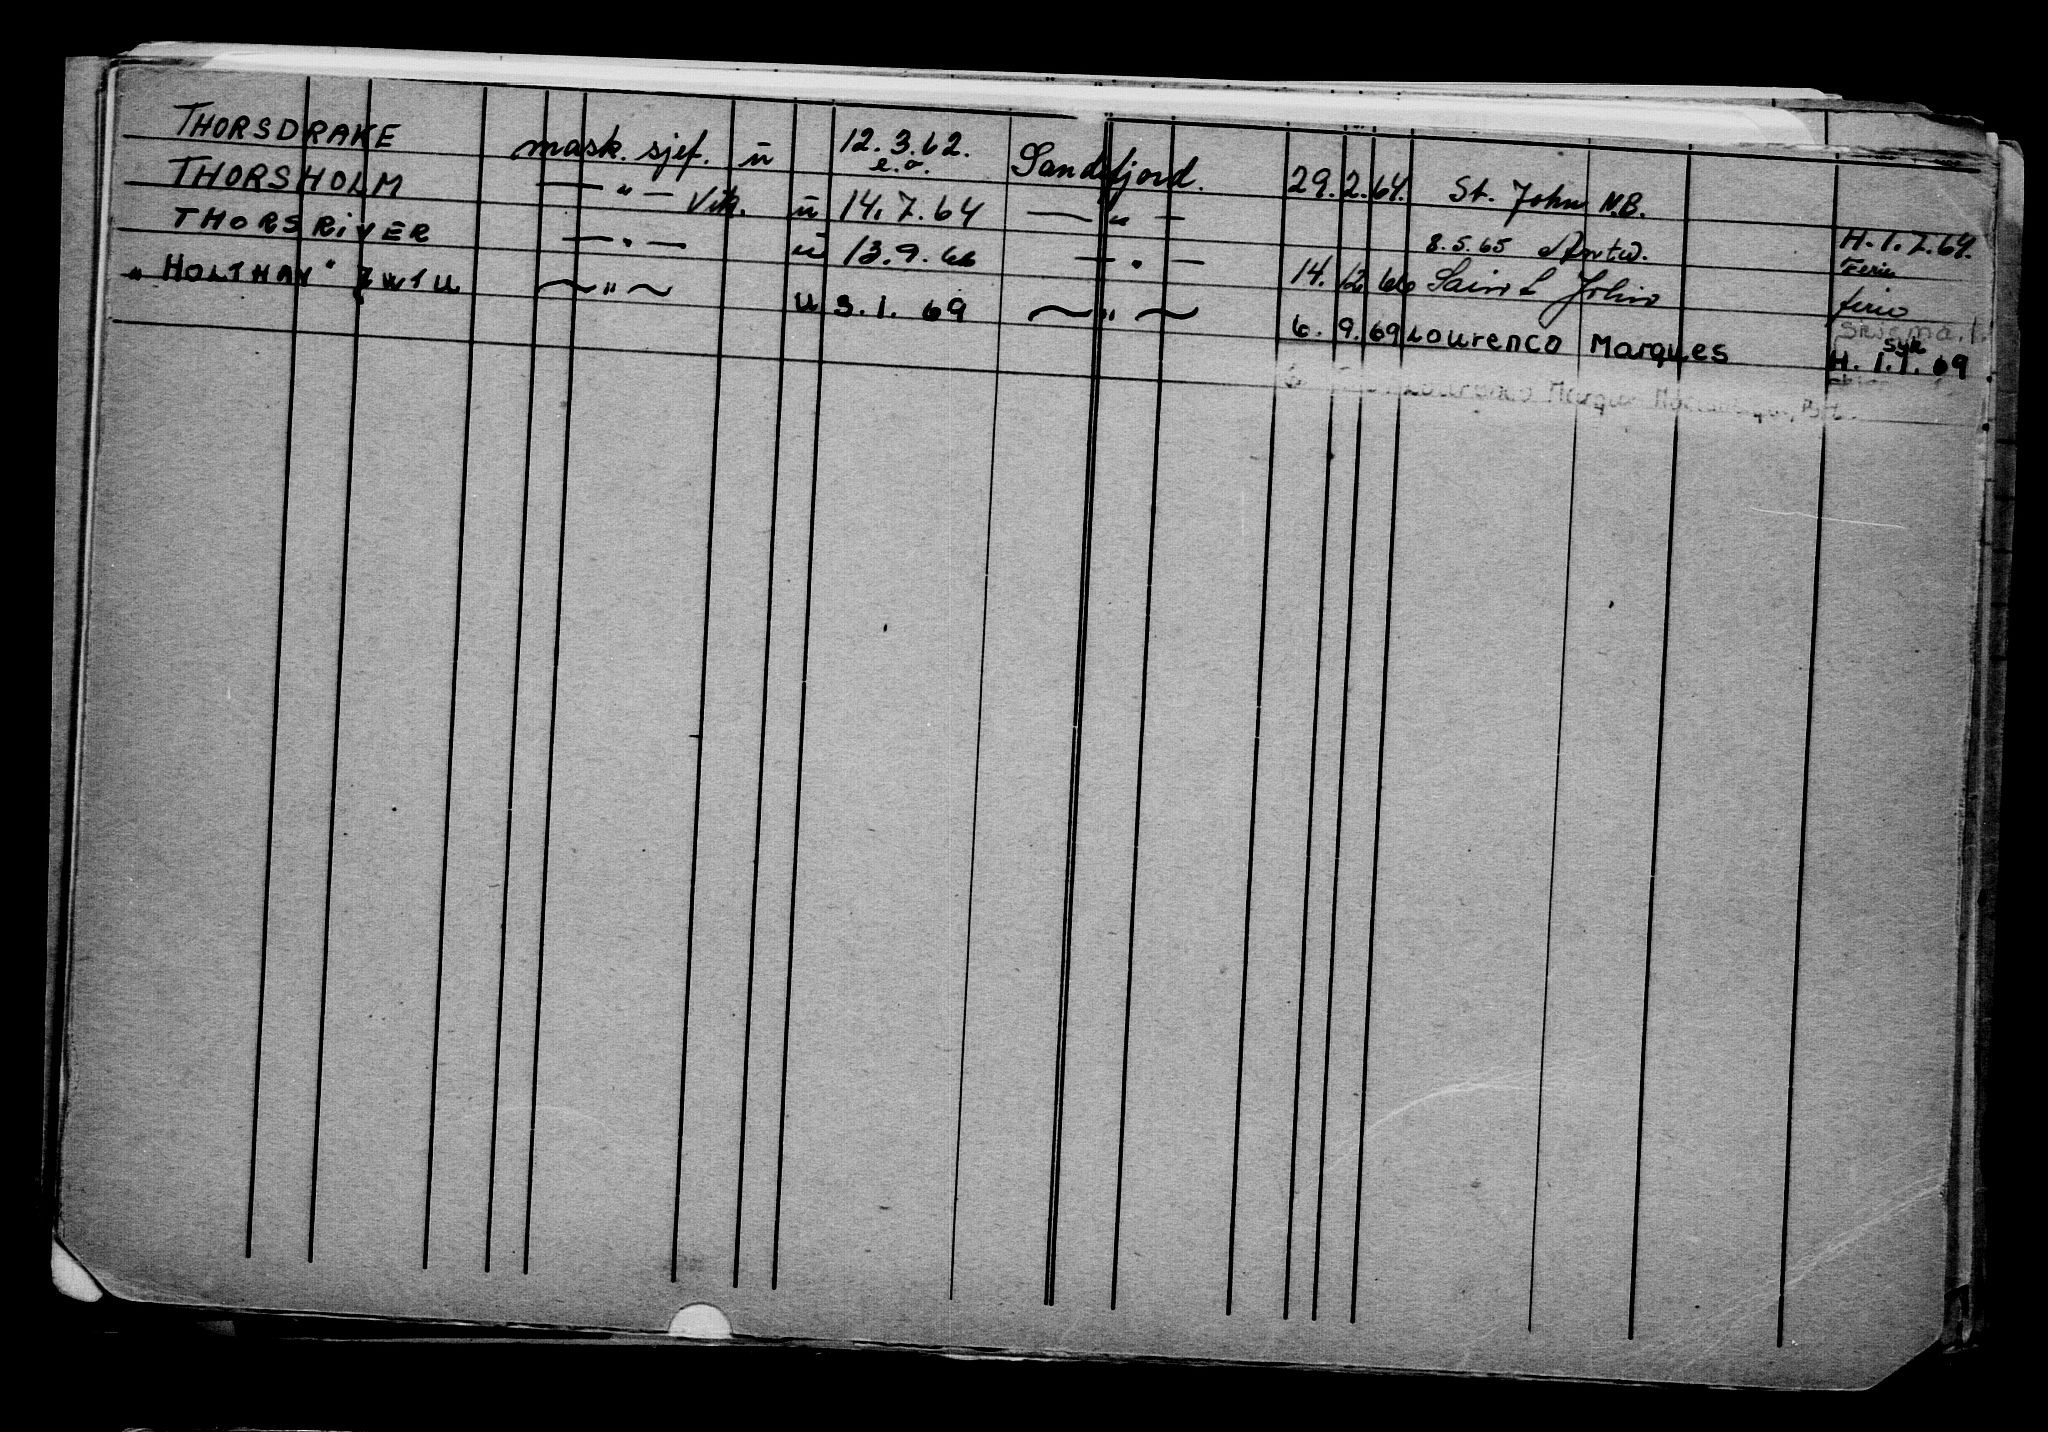 THORSDRAKE mask. sjef. ü 12.3.62. e.o. Sandefjord. 29. 2. 64. St. John N.B. H.1.7.64.
THORSHOLM —„— Vik. ü 14.7.64 —„— 8.5.65 Antw. Ferie
THORSRIVER —„— ü 13.9.66 —„— 14. 12. 66 Saint John ferie
„HOLTHAV" u 3.1.69 ~„~ 6. 9. 69 Lourenco Marques syk H. 1.1.69
Lourenco Marques